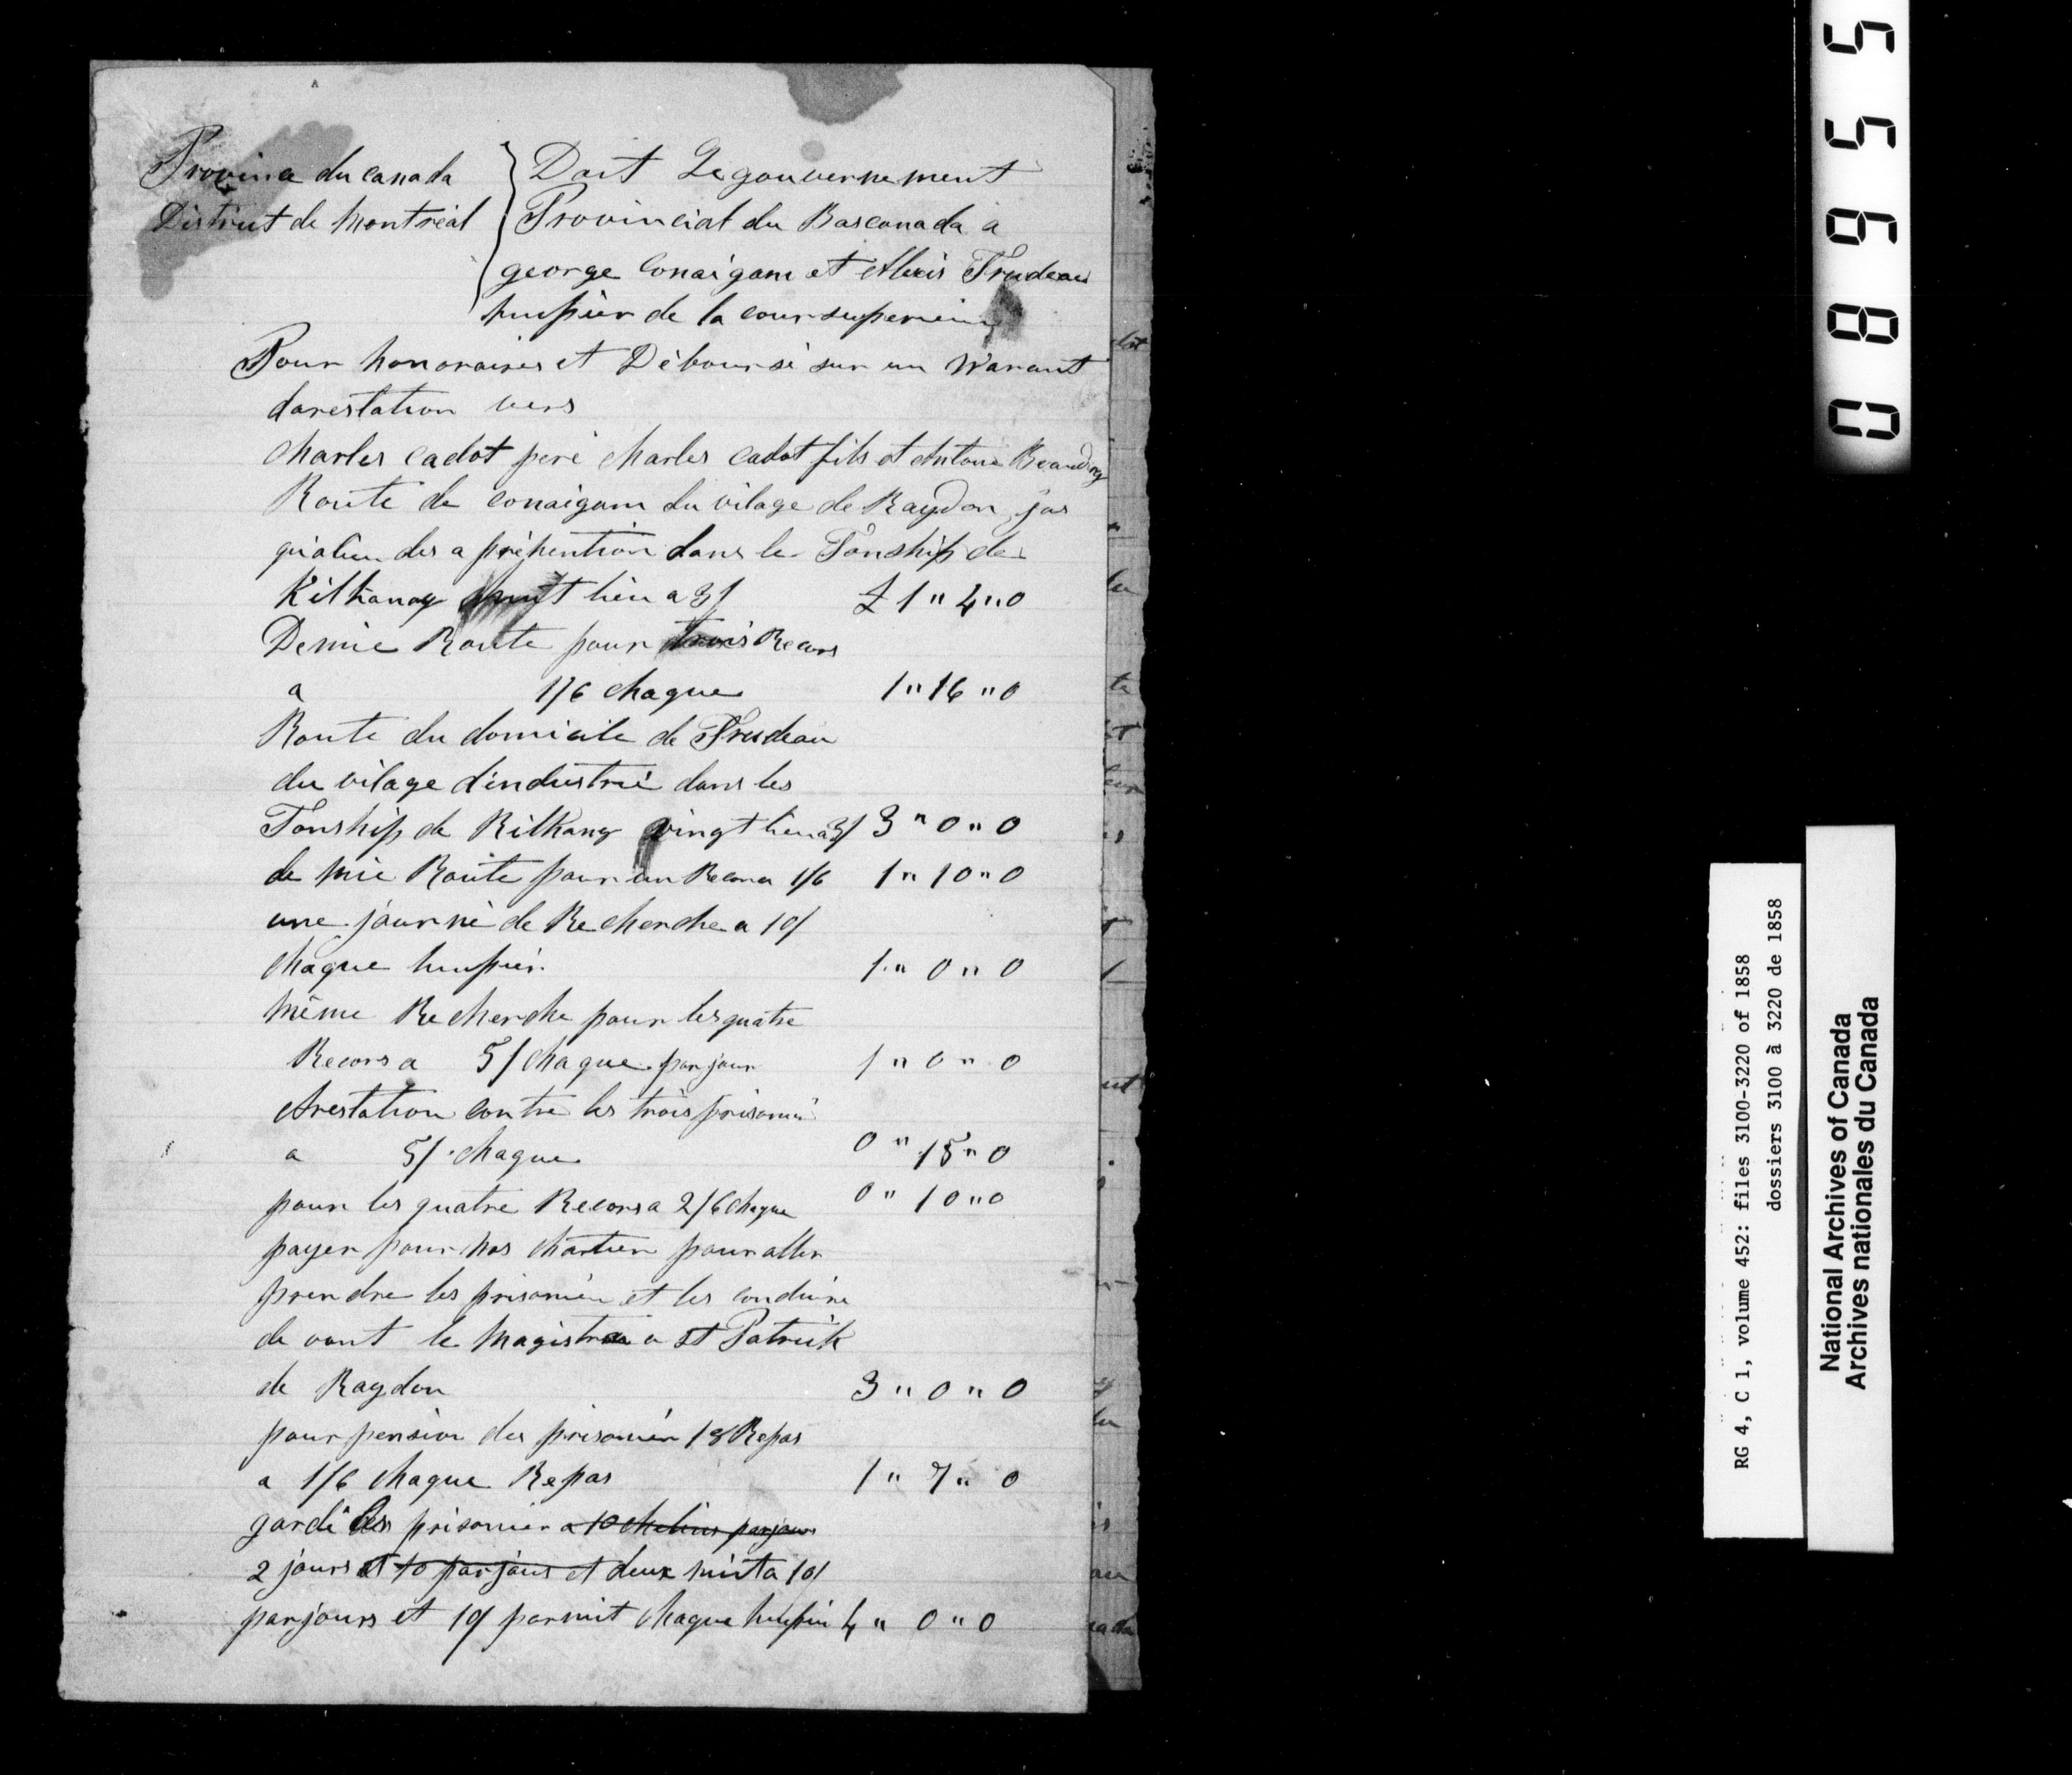 Province du canada
District de Montréal
Doit Le gouvernement
Provincial du Bascanada a
george Conaigam et Alexis Trudeau
huissier de la cour superieur
Pour honoraires et Déboursé sur un Warant
darestation vers
Charles cadot peré charles cadot fils et Antoine Beaudry
Route de conaigam du vilage de Raydon jus
qualieu des apréhention dans le Tonship de
Kilkanay huit lieu a 3/ £ 1 " 4 " 0
Demie Route pour trois Recors
a 1/6 chaque 1 " 16 " 0
Route du domicile de Trudeau
du vilage d'industrié dans les
Tonship de Kilkany vingt lieu a 3/ 3 " 0 " 0
de mie Route pour un Recor a 1/6 1 " 10 " 0
une journé de Recherche a 10/
chaque huissier 1 " 0 " 0
même Recherche pour les quatre
Recors a 5/ chaque par jour 1 " 0 " 0
Arestation contre les trois prisonié
a 5/ chaque 0 " 15 " 0
pour les quatre Recors a 2/6 chaque 0 " 10 " 0
payer pour nos chartier pour aller
prendre les prisonier et les conduire
de vant le Magistra a St Patrick
de Raydon 3 " 0 " 0
pour pension des prisonier 18 Repas
a 1/6 chaque Repas 1 " 7 " 0
garde des prisonier a 10 chelins par jour
2 jours et 10 par jour et deux nuit a 10/
par jours et 10/ par nuit chaque huissier 4 " 0 " 0
08955
RG 4, C 1, volume 452: files 3100-3220 of 1858
dossiers 3100 à 3220 de 1858
National Archives of Canada
Archives nationales du Canada